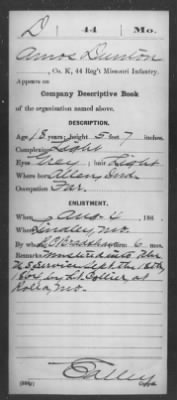 D 44 Mo.
Amos Dunton
, Co. K, 44 Reg't Missouri Infantry.
Appears on
Company Descriptive Book
of the organization named above.
DESCRIPTION.
Age 18 years; height 5 feet 7 inches.
Complexion Light
Eyes Grey; hair Light
Where born Allen, Ind
Occupation Far.
ENLISTMENT.
When Aug 4, 186 .
Where Lindley, Mo.
By whom Bradshaw; term 6 mos.
Remarks: Mustered into the
U S Service Sept the
by Lt. Collier at
Rolla, Mo.
Copyist.